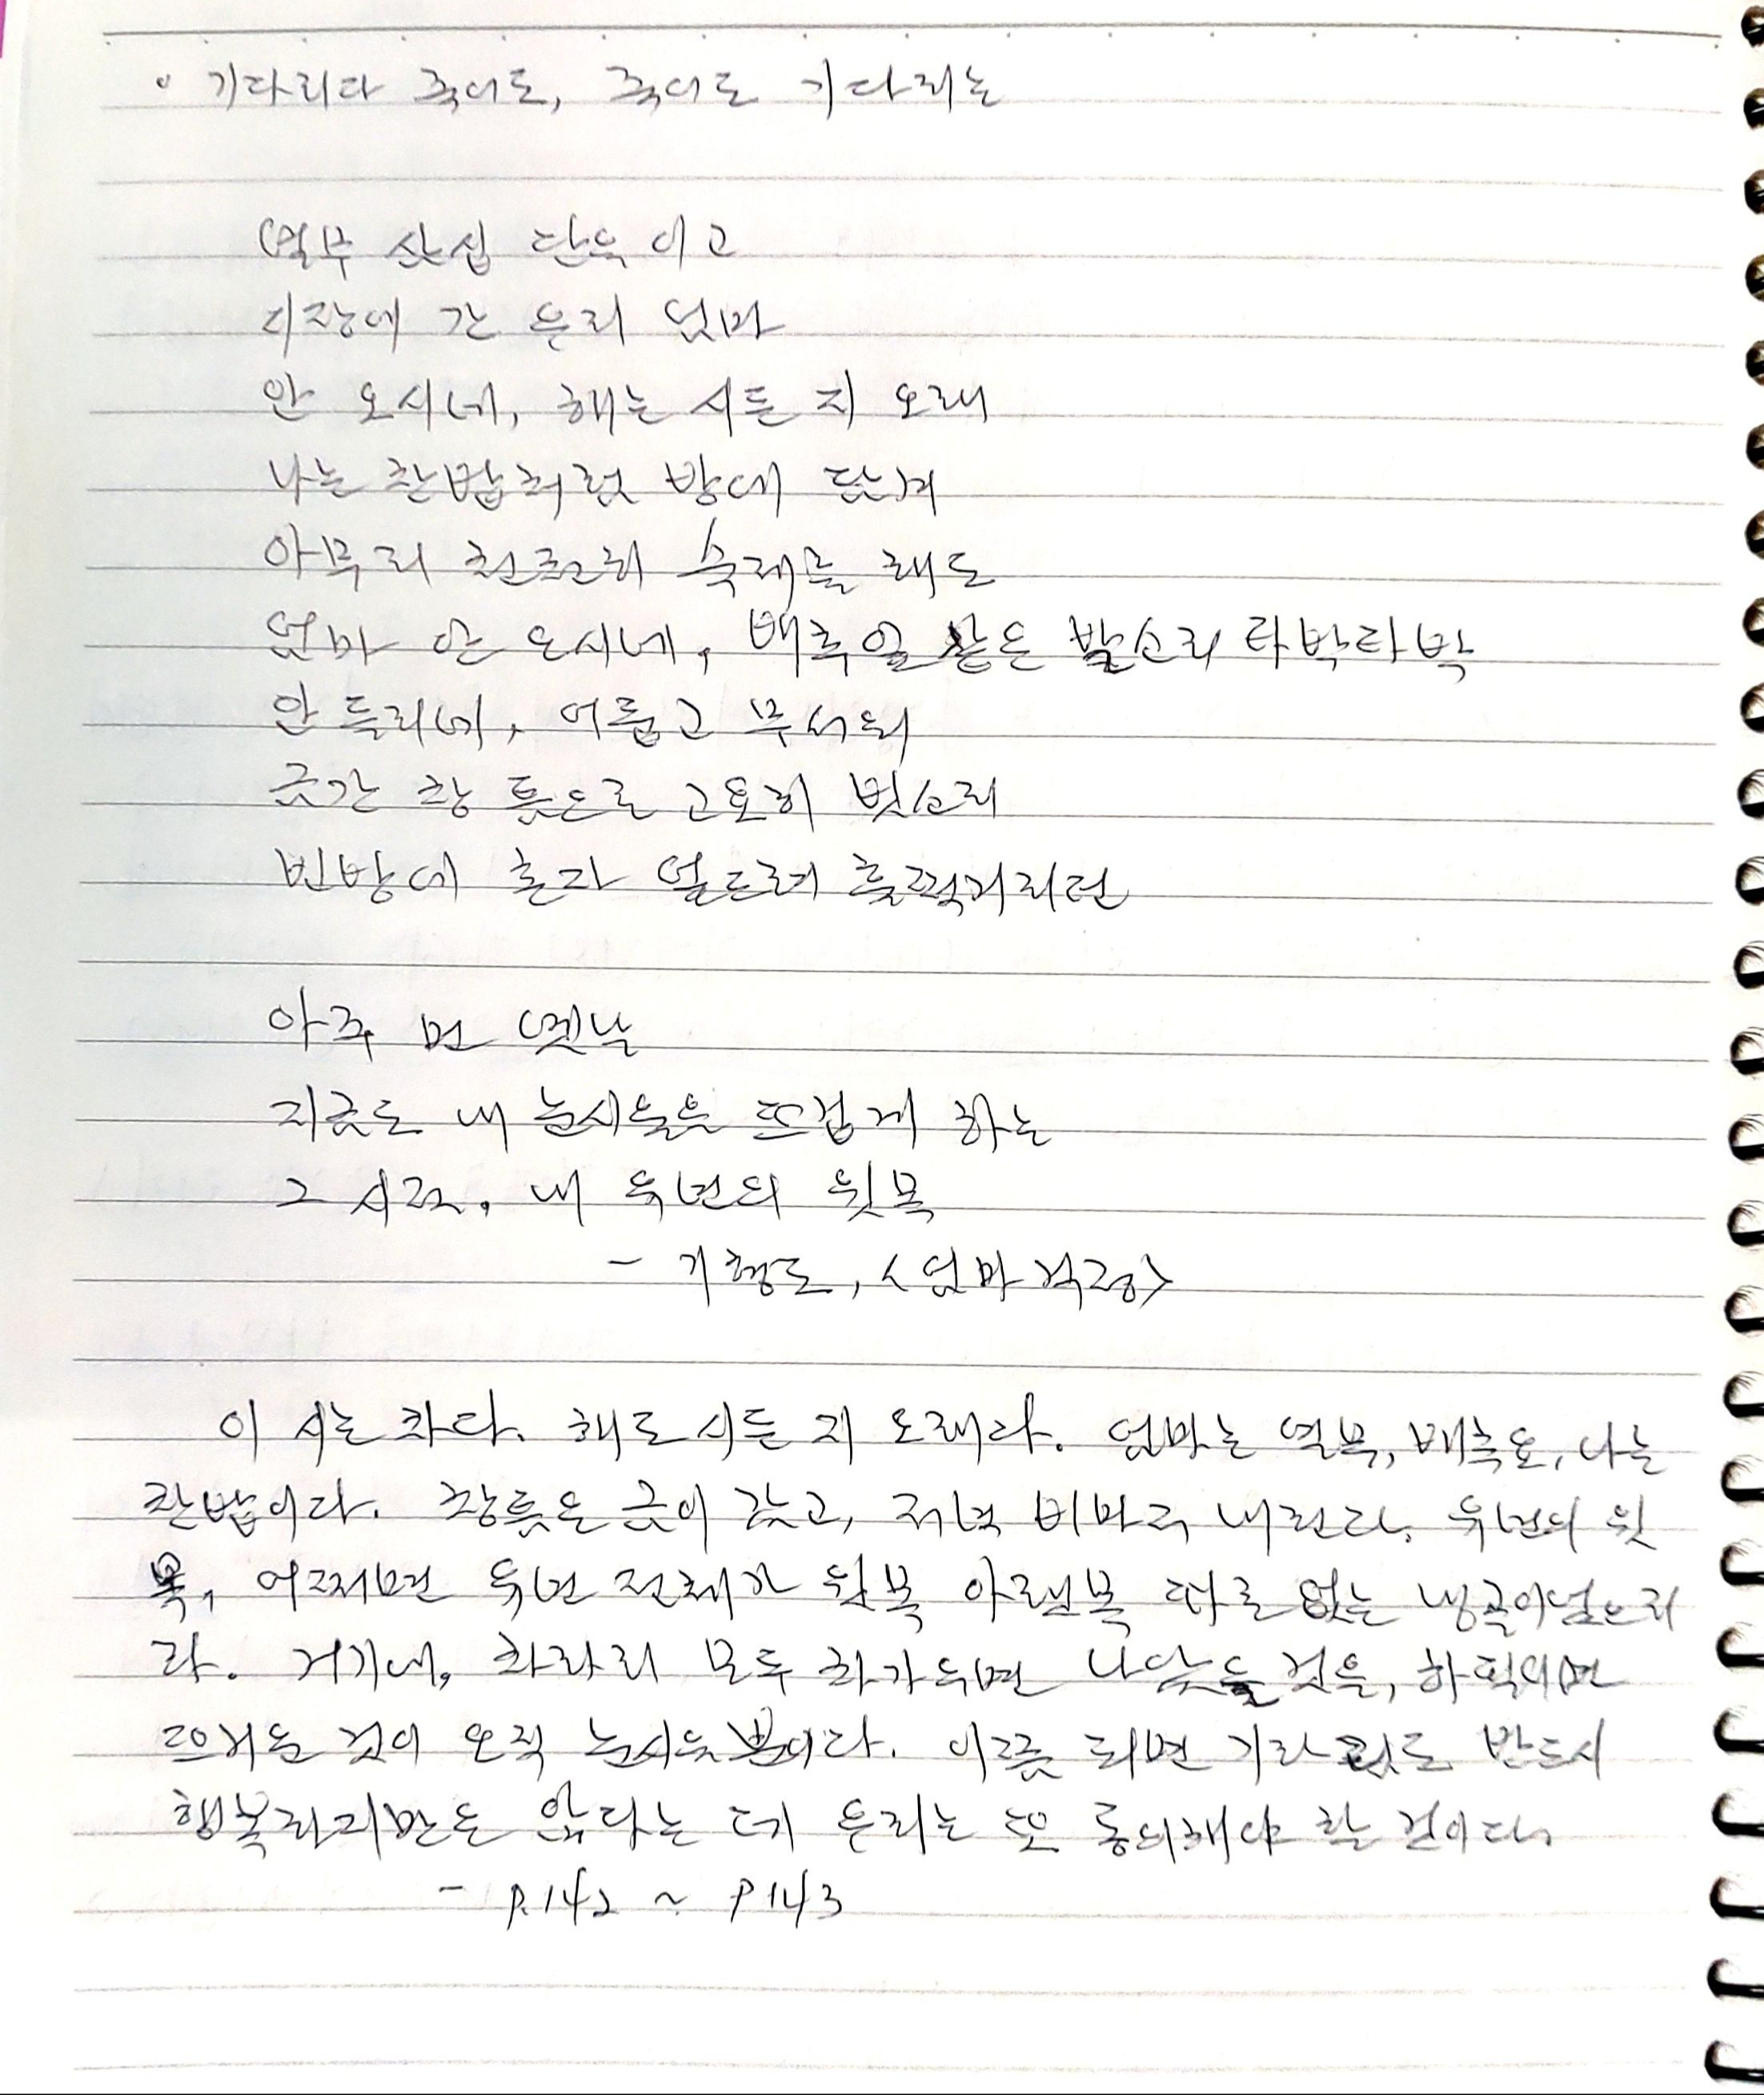 • 기다리다 죽어도, 죽어도 기다리는
열무 삼십 단을 이고
시장에 간 우리 엄마
안 오시네, 해는 시든 지 오래
나는 찬밥처럼 방에 담겨
아무리 천천히 숙제를 해도
엄마 안 오시네, 배추잎 같은 발소리 타박타박
안 들리네, 어둡고 무서워
금간 창 틈으로 고요히 빗소리
빈방에 혼자 엎드려 훌쩍거리던
아주 먼 옛날
지금도 내 눈시울을 뜨겁게 하는
그 시절, 내 유년의 윗목
- 기형도, <엄마 걱정>
이 시는 차다. 해도 시든 지 오래다. 엄마는 열무, 배추요, 나는
찬밥이다. 창틈은 금이 갔고, 저녁 비마저 내린다. 유년의 윗
목, 어쩌면 유년 전체가 윗목 아랫목 따로 없는 냉골이었으리
라. 거기에, 차라리 모두 차가우면 나았을 것을, 하필이면
뜨거운 것이 오직 눈시울뿐이다. 이쯤 되면 기다림도 반드시
행복하지만은 않다는 데 우리는 또 동의해야 할 것이다.
- P.142 ~ P143